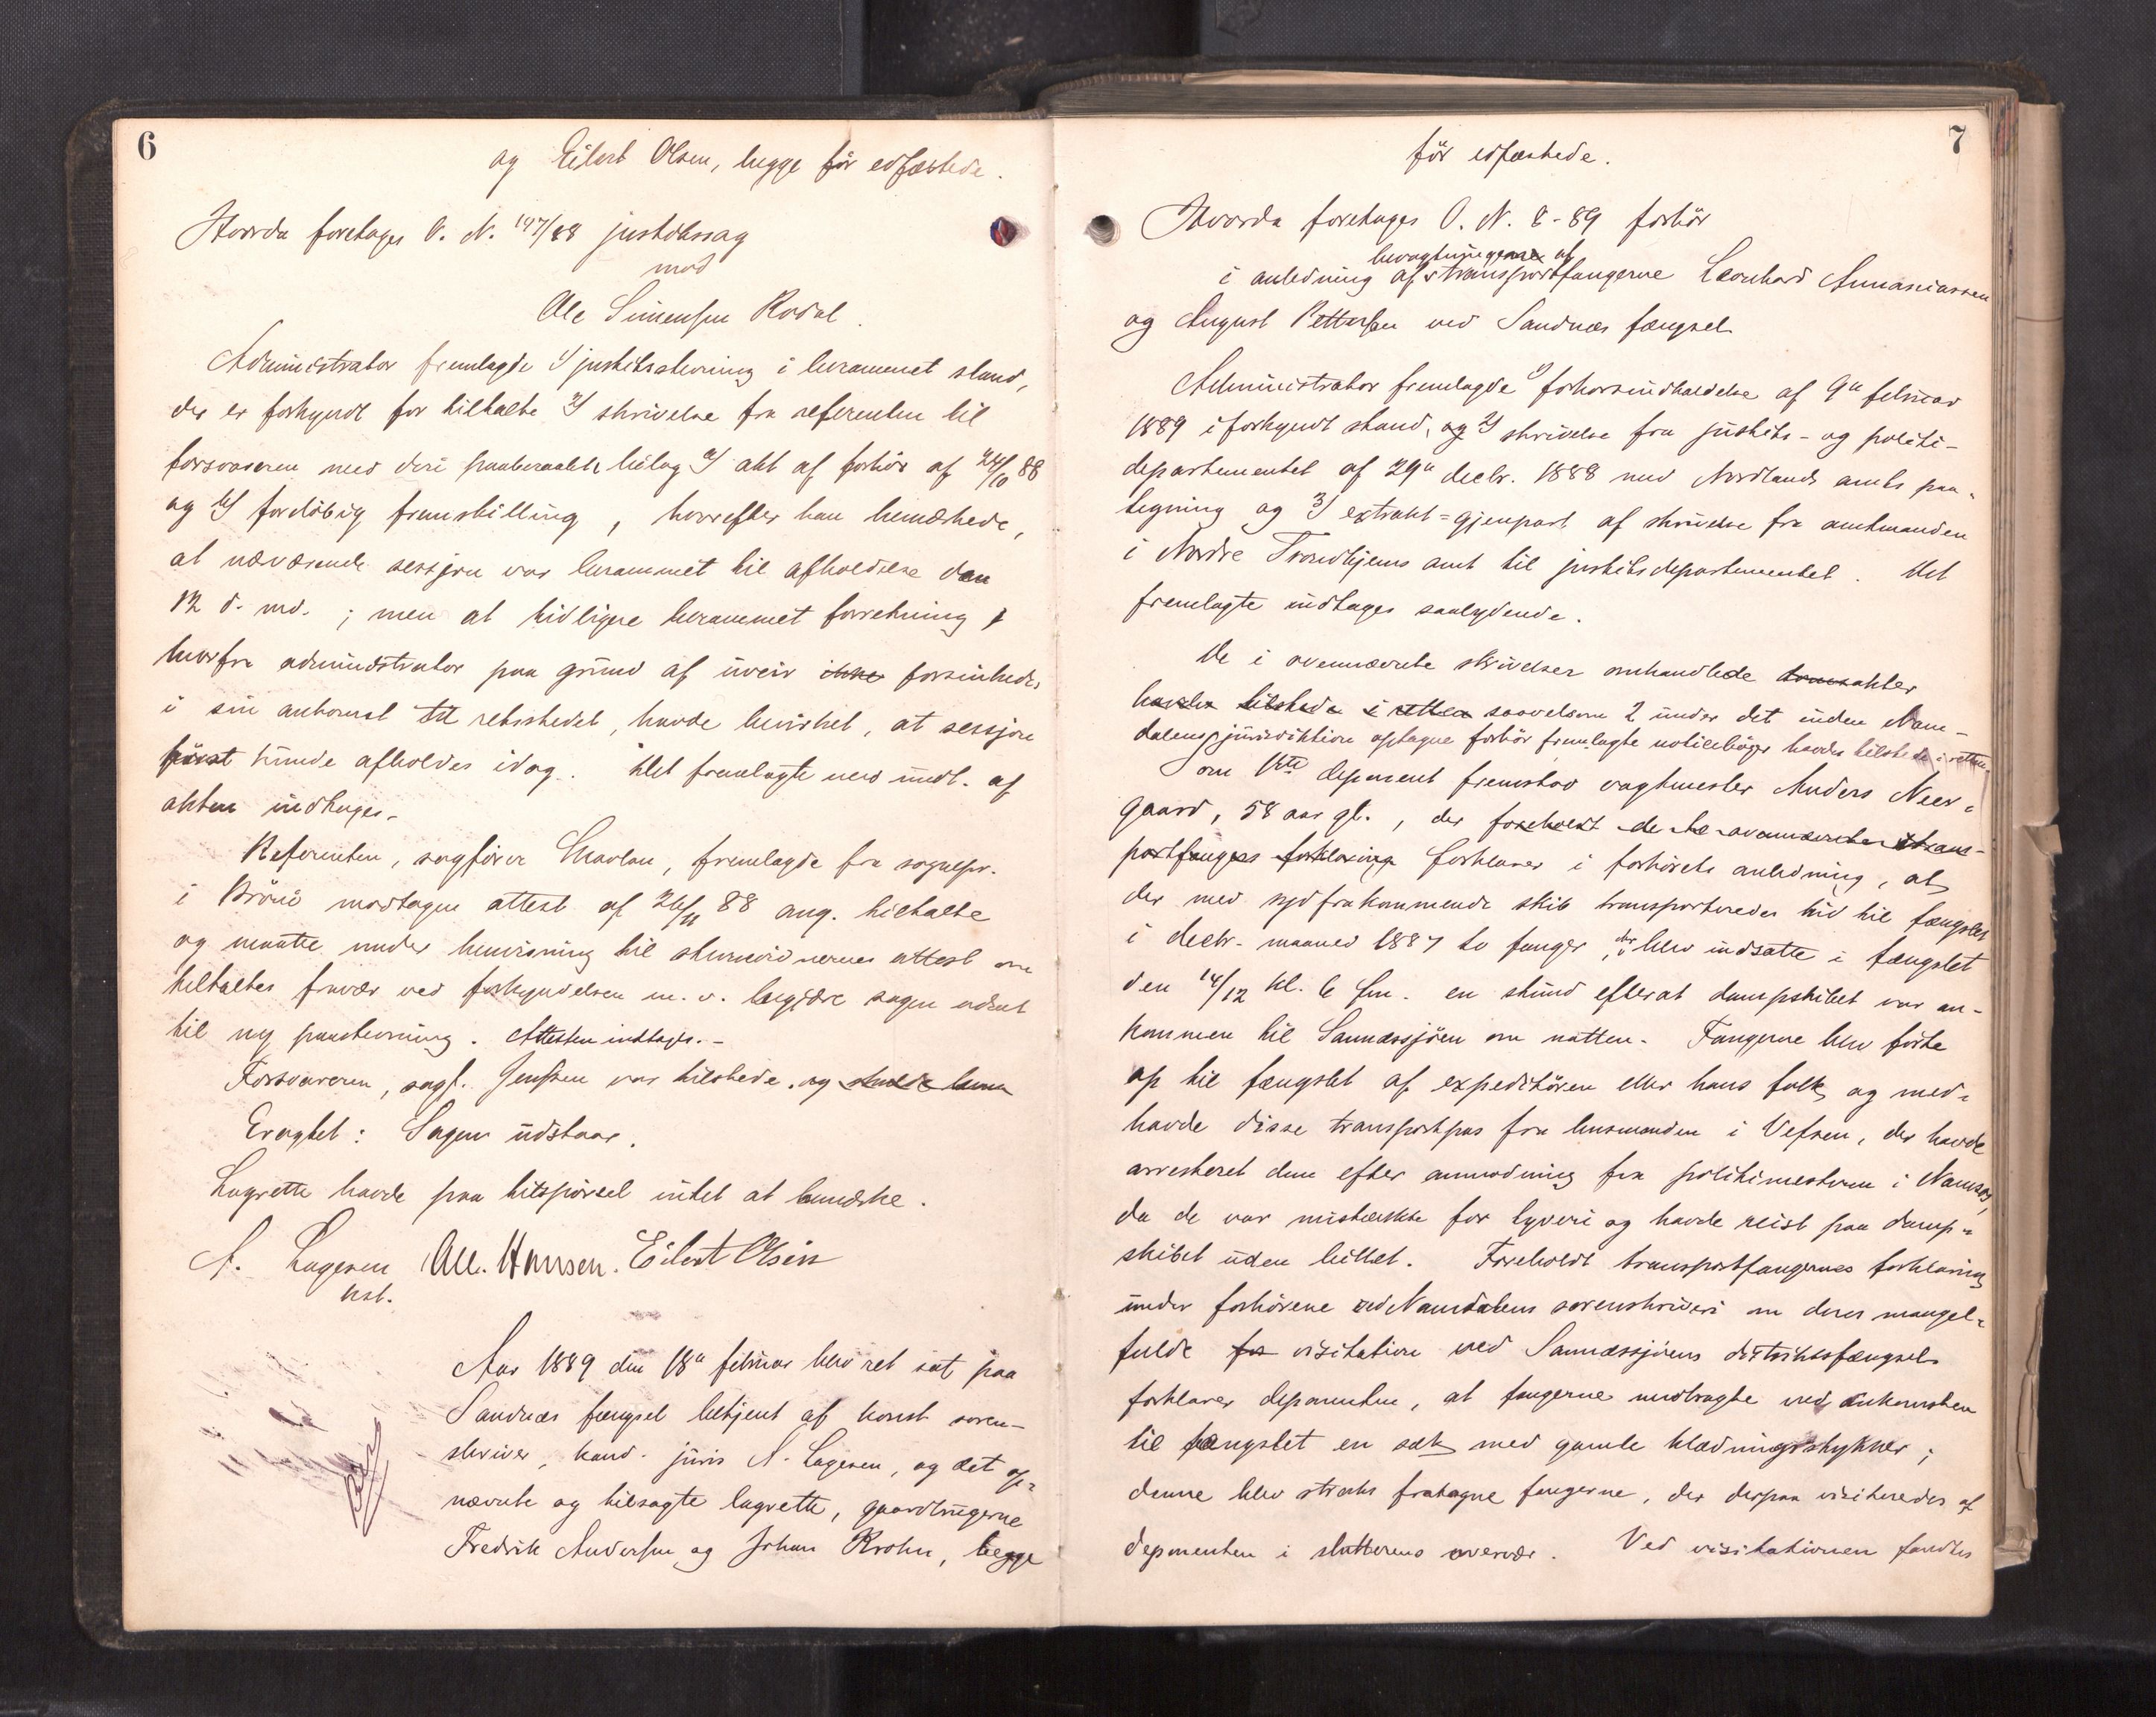 6
og Eilert Olsen, begge før edfæstede.
Hvorda foretages O. N. 197/88 justitssag
mod
Ole Simensen Rodal.
Administrator fremlagde 1) justitsstevning i berammet stand,
der er forkyndt for tiltalte 2) skrivelse fra referenten til
forsvareren med deri paaberaabte bilag 3) akt af forhør af 24/10 88
og 4) foreløbig fremstilling, hvorefter han bemærkede,
at nærværende sessjon var berammet til afholdelse den
12 d. md.; men at tidligere berammet forretning,
hvorfra administrator paa grund af uveir ikke forsinkedes
i sin ankomst til retsstedet, havde bevirket, at sessjon
først kunde afholdes idag. Det fremlagte med undt. af
akten indtages.
Referenten, sagfører Charlow, fremlagde fra sognepr.
i Brønø modtagen attest af 26/11 88 ang. tiltalte
og maatte under henvisning til stevnevidnernes attest om
tiltaltes fravær ved forkyndelsen m. v. begjære sagen udsat
til ny paastevning. Attesten indtages. –
Forsvareren, sagf. Jenssen var tilstede. og skulde bem
Eragtet: Sagen udstaar.
Lagrette havde paa tilspørsel intet at bemærke.
A. Lagesen Ole. Hansen. Eilert Olsen
kst.
Aar 1889 den 18de februar blev ret sat paa
Sandnæs fængsel betjent af konst. soren-
skriver, kand. juris A. Lagesen, og det op-
nævnte og tilsagte lagrette, gaardbrugerne
Fredrik Andersen og Johan Krohn, begge
7
før edfæstede.
Hvorda foretages O. N. 8-89 forhør
bevogtningerne af
i anledning af transportfangerne Leonhard Annaniassen
og August Pettersen ved Sandnæs fængsel.
Administrator fremlagde 1) forhørsindkaldelse af 9de februar
1889 i forkyndt stand, og 2) skrivelse fra justits- og politi-
departementet af 29de decbr. 1888 med Nordlands amts paa-
tegning og 3) extrakt-gjenpart af skrivelse fra amtmanden
i Nordre Trondhjems amt til justitsdepartementet. Det
fremlagte indtages saalydende.
De i ovennævnte skrivelser omhandlede akter
havdes tilstede i retten saavelsom 2 under det inden Nam-
dalens jurisdiktion optagne forhør fremlagte notitsbøger havdes tilstede i retten.
Som 1ste deponent fremstod vagtmester Anders Neer-
gaard, 58 aar gl., der foreholdt de to ovennævnte trans-
portfangers forklaring forklarer i forhørets anledning, at
der med sydfrakommende skib transporteredes hid til fængslet
i decbr. maaned 1887 to fanger, der blev indsatte i fængslet
den 14/12 kl. 6 fm. en stund efterat dampskibet var an-
kommen til Sannæssjøen om natten. Fangerne blev førte
op til fængslet af expeditøren eller hans folk og med-
havde disse transportpas fra lensmanden i Vefsen, der havde
arresteret dem efter anmodning fra politimesteren i Namsos,
da de var mistænkte for tyveri og havde reist paa damp-
skibet uden billet. Foreholdt transportfangernes forklaring
under forhørene ved Namdalens sorenskriveri om deres mangel-
fulde for visitation ved Sannæssjøens distriktsfængsel
forklarer deponenten, at fangerne medbragte ved ankomsten
til fængslet en sæk med gamle klædningsstykker;
denne blev straks fratagne fangerne, der derpaa visiteredes af
deponenten i slutterens overvær. Ved visitationen fandtes